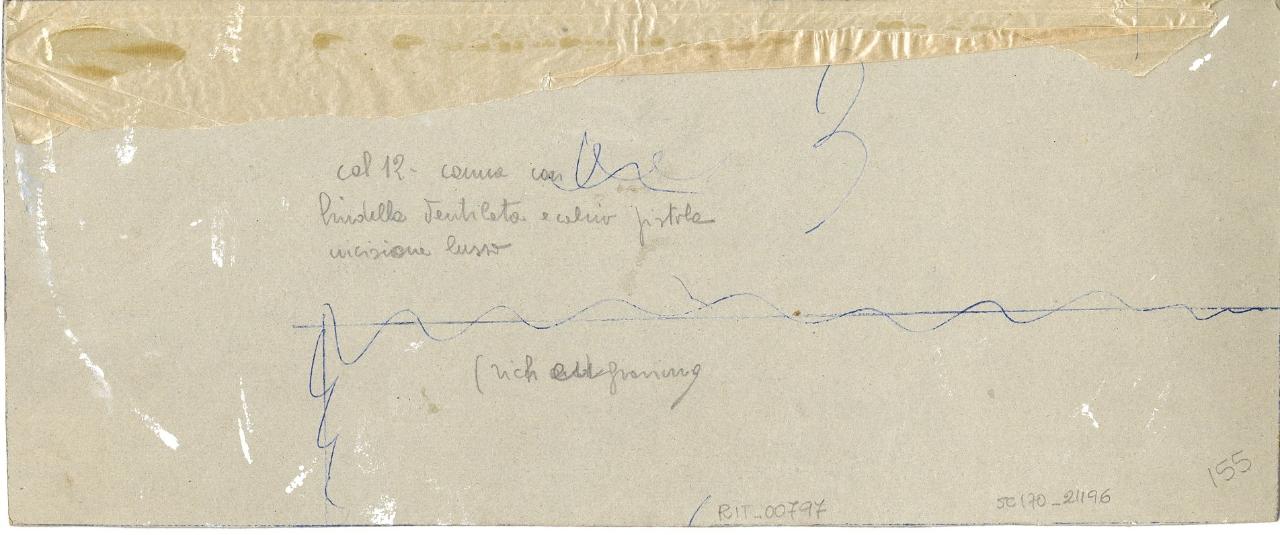 3
cal 12- canna con
bindella ventilata e calcio pistola
incisione lusso
(rich engraving
RIT_00797
SC170_21196
155